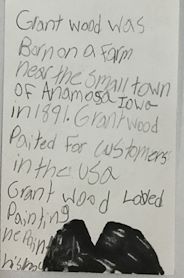 Grant wood was
Born on a Farm
near the small town
OF Anamosa Iowa
in 1891. Grant wood
Paited For customers
in the USA
Grant Wood Lobed
Painting
he Pain